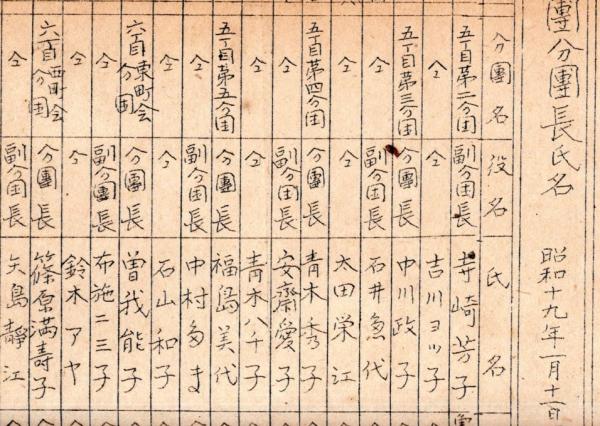 團分團長氏名 昭和十九年一月十一日
分團名 役名 氏名
五丁目第二分団 副分団長 寺崎芳子
仝 仝 吉川ヨツ子
五丁目第三分団 分團長 中川政子
仝 副分団長 石井代
仝 仝 太田栄江
五丁目第四分団 分團長 青木秀子
仝 副分団長 安齋愛子
仝 仝 青木八千子
五丁目第五分団 分團長 福島美代
仝 副分団長 中村多ま
仝 仝 石山和子
六丁目東町会分団 分團長 曽我能子
仝 副分団長 布施二三子
仝 仝 鈴木アヤ
六丁目西町会分団 分團長 篠原満壽子
仝 副分団長 矢島靜江